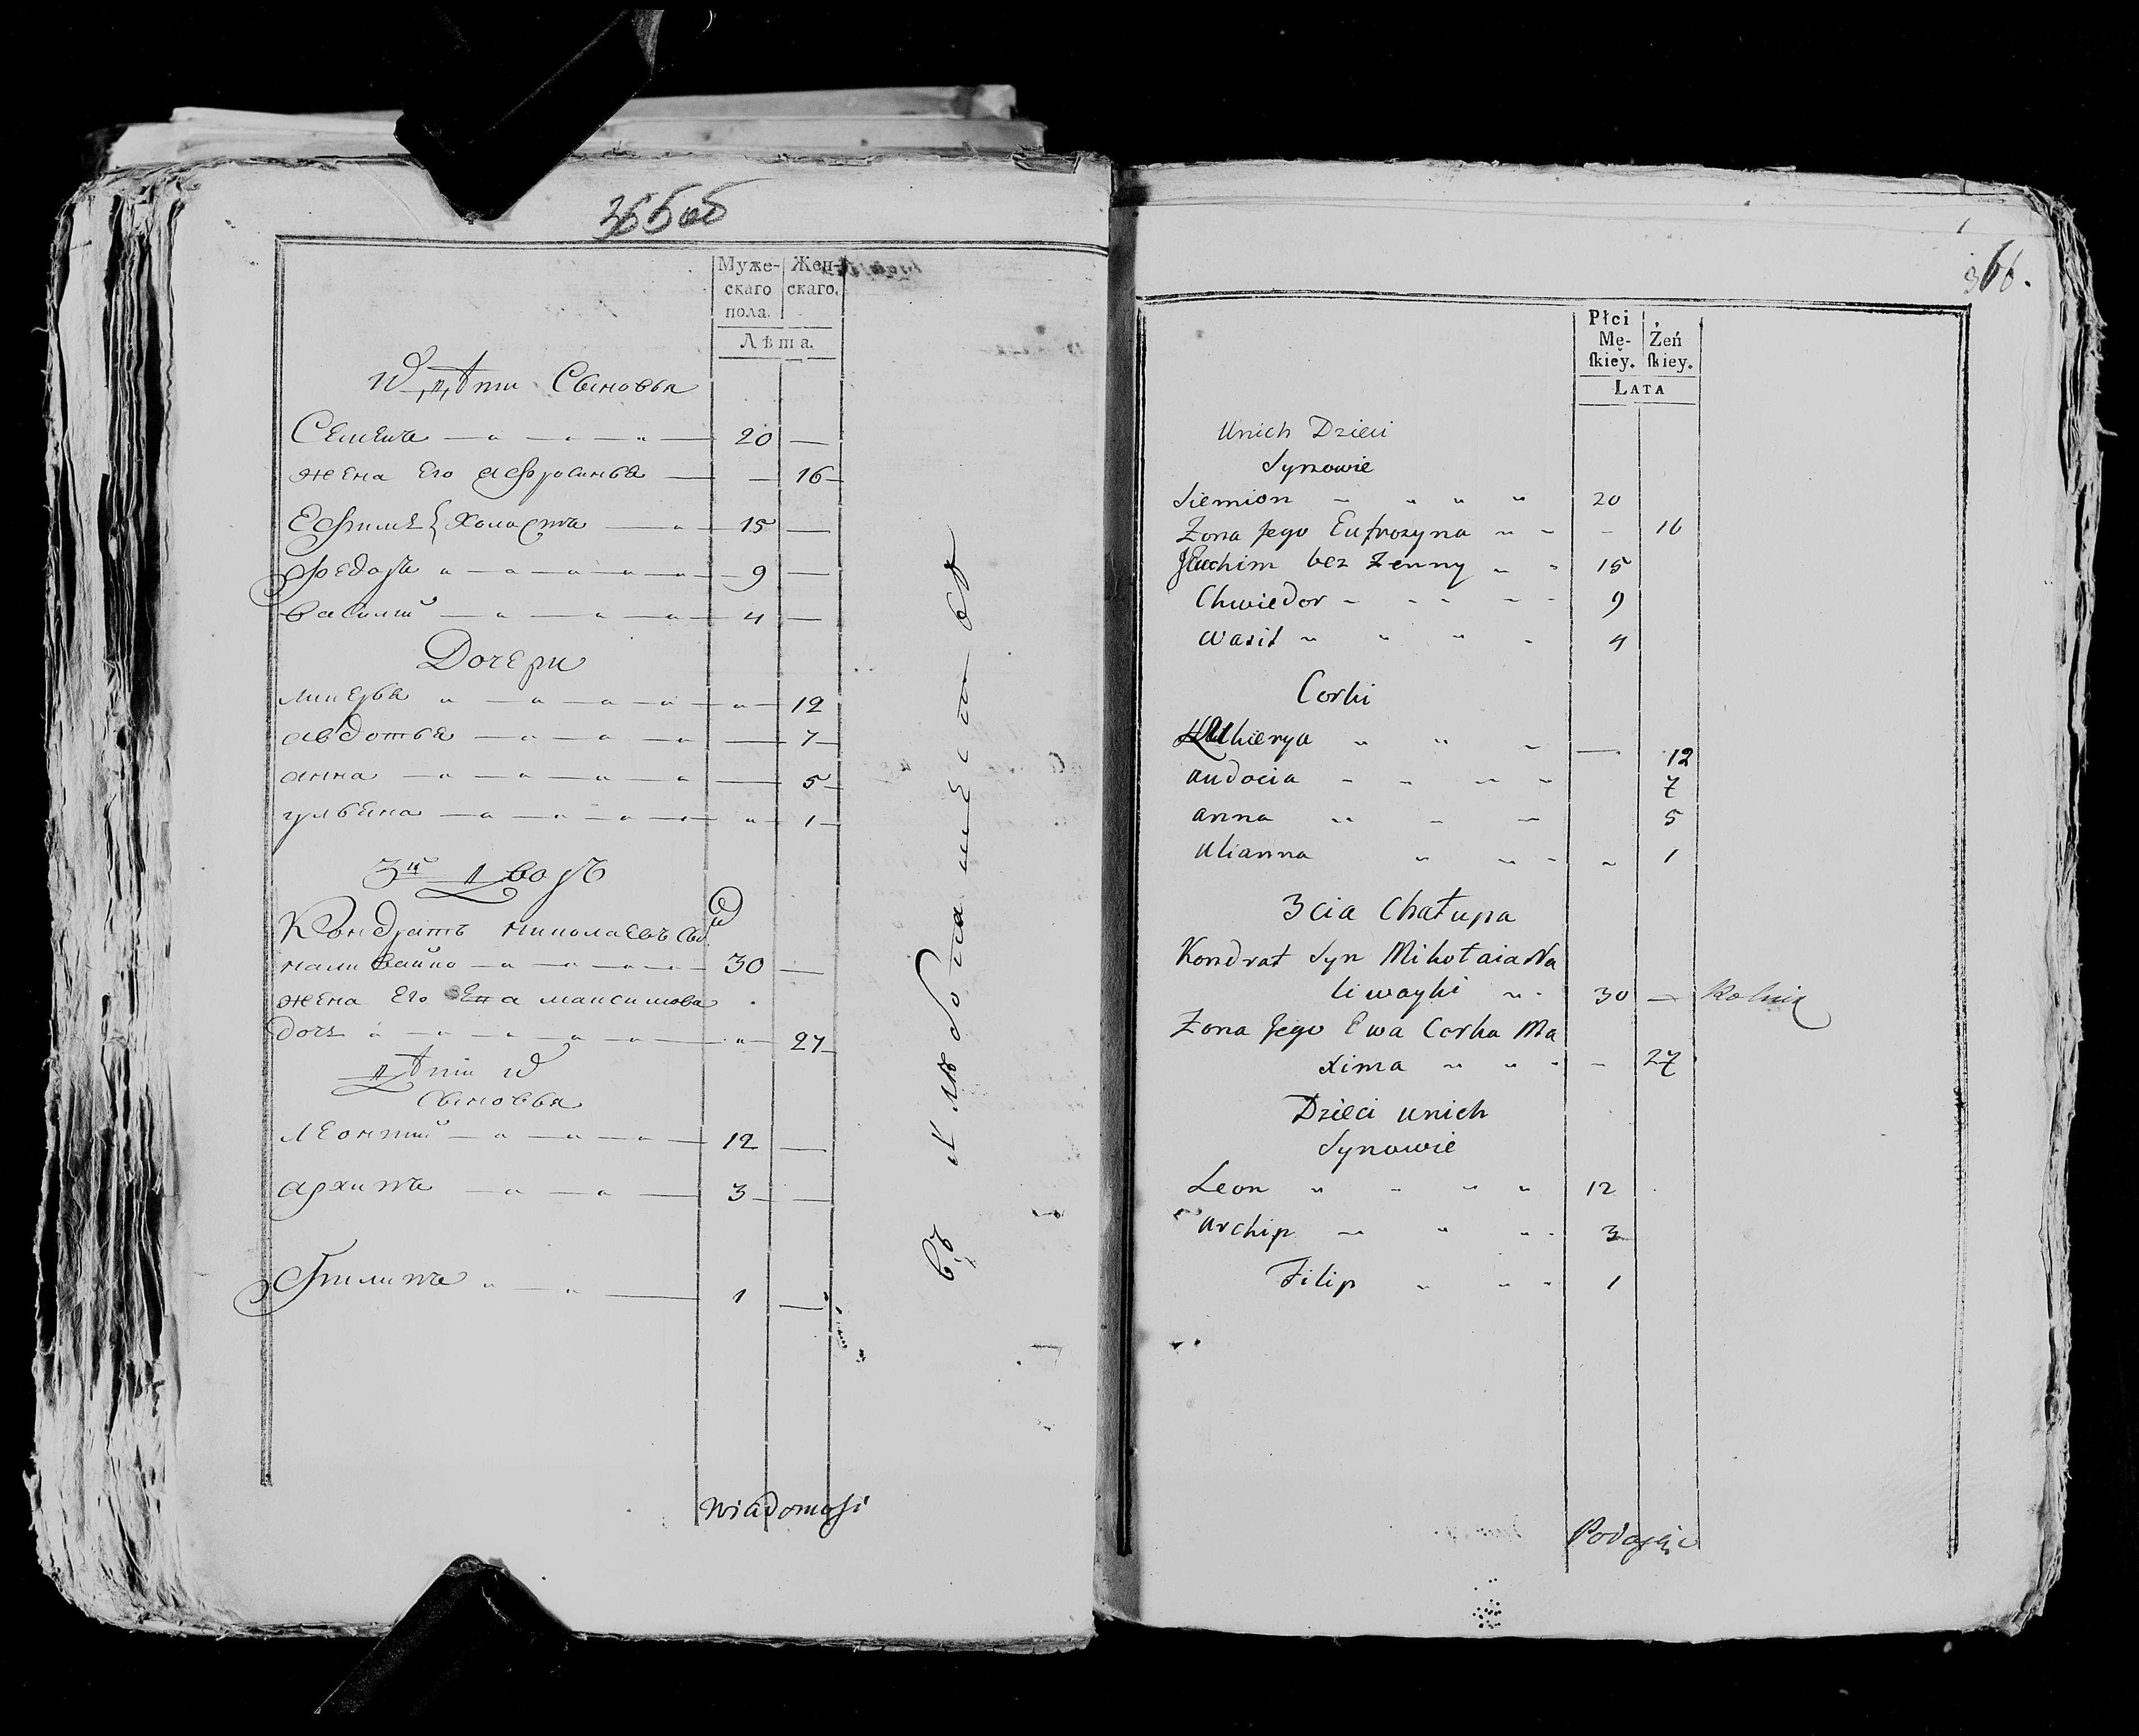 365 об
Муже-
скаго
пола.
Жен-
скаго.
Лѣта.
Дѣти Сыновья
Семенъ 20 —
жена Его Афросинья — 16
Ефимъ холостъ 15 —
Федоръ 9 —
Василий 4 —
Дочери
12
Авдотья — 7
Анна — 5
Ульяна 1
3й Дворъ
Кондратъ Николаевъ Сынъ
Наливайко 30 —
жена Его Ева Максимова
Дочь 27
Дѣти
Сыновья
Леонтий 12 —
Архипъ 3 —
Филипъ 1 —
Wiadomości
366.
Płci
Mę-
skiey.
Żeń
skiey.
LATA
Unich Dzieci
Synowie
Siemion 20
Zona Jego Eufrozyna - 16
bez Zenny 15
Chwiedor 9
Wasil 4
Corki
— 12
Audocia 7
Anna 5
Ulianna 1
3cia Chałupa
Kondrat Syn Mikołaia Na
liwayki 30 — Rolnik
Zona Jego Ewa Corka Ma
xima - 27
Dzieci unich
Synowie
Leon 12
Archip 3
Filip 1